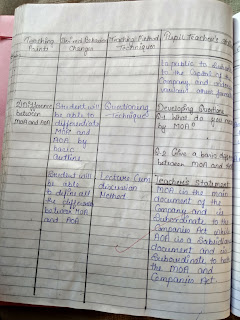 Teaching Points
Desired Behaviour Changes
Teaching Method Techniques
Pupil Teacher's
to the Capital of the
Company and
various
Difference
between
MOA and AOA
Student will
be able to
differentiate
MOA and
AOA by
basic
outline
Questioning
technique
Developing Questions
Q-1 What do you mean
by MOA?
Q-2 Give a basic difference
between MOA and AOA
Student will
be able
to define all
the difference
between MOA
and AOA
Lecture Cum
discussion
Method
Teacher's Statement
MOA is the main
document of the
Company and is
Subordinate to the
Companies Act while
AOA is a
document and is
Subordinate to both
the MOA and
Companies Act.